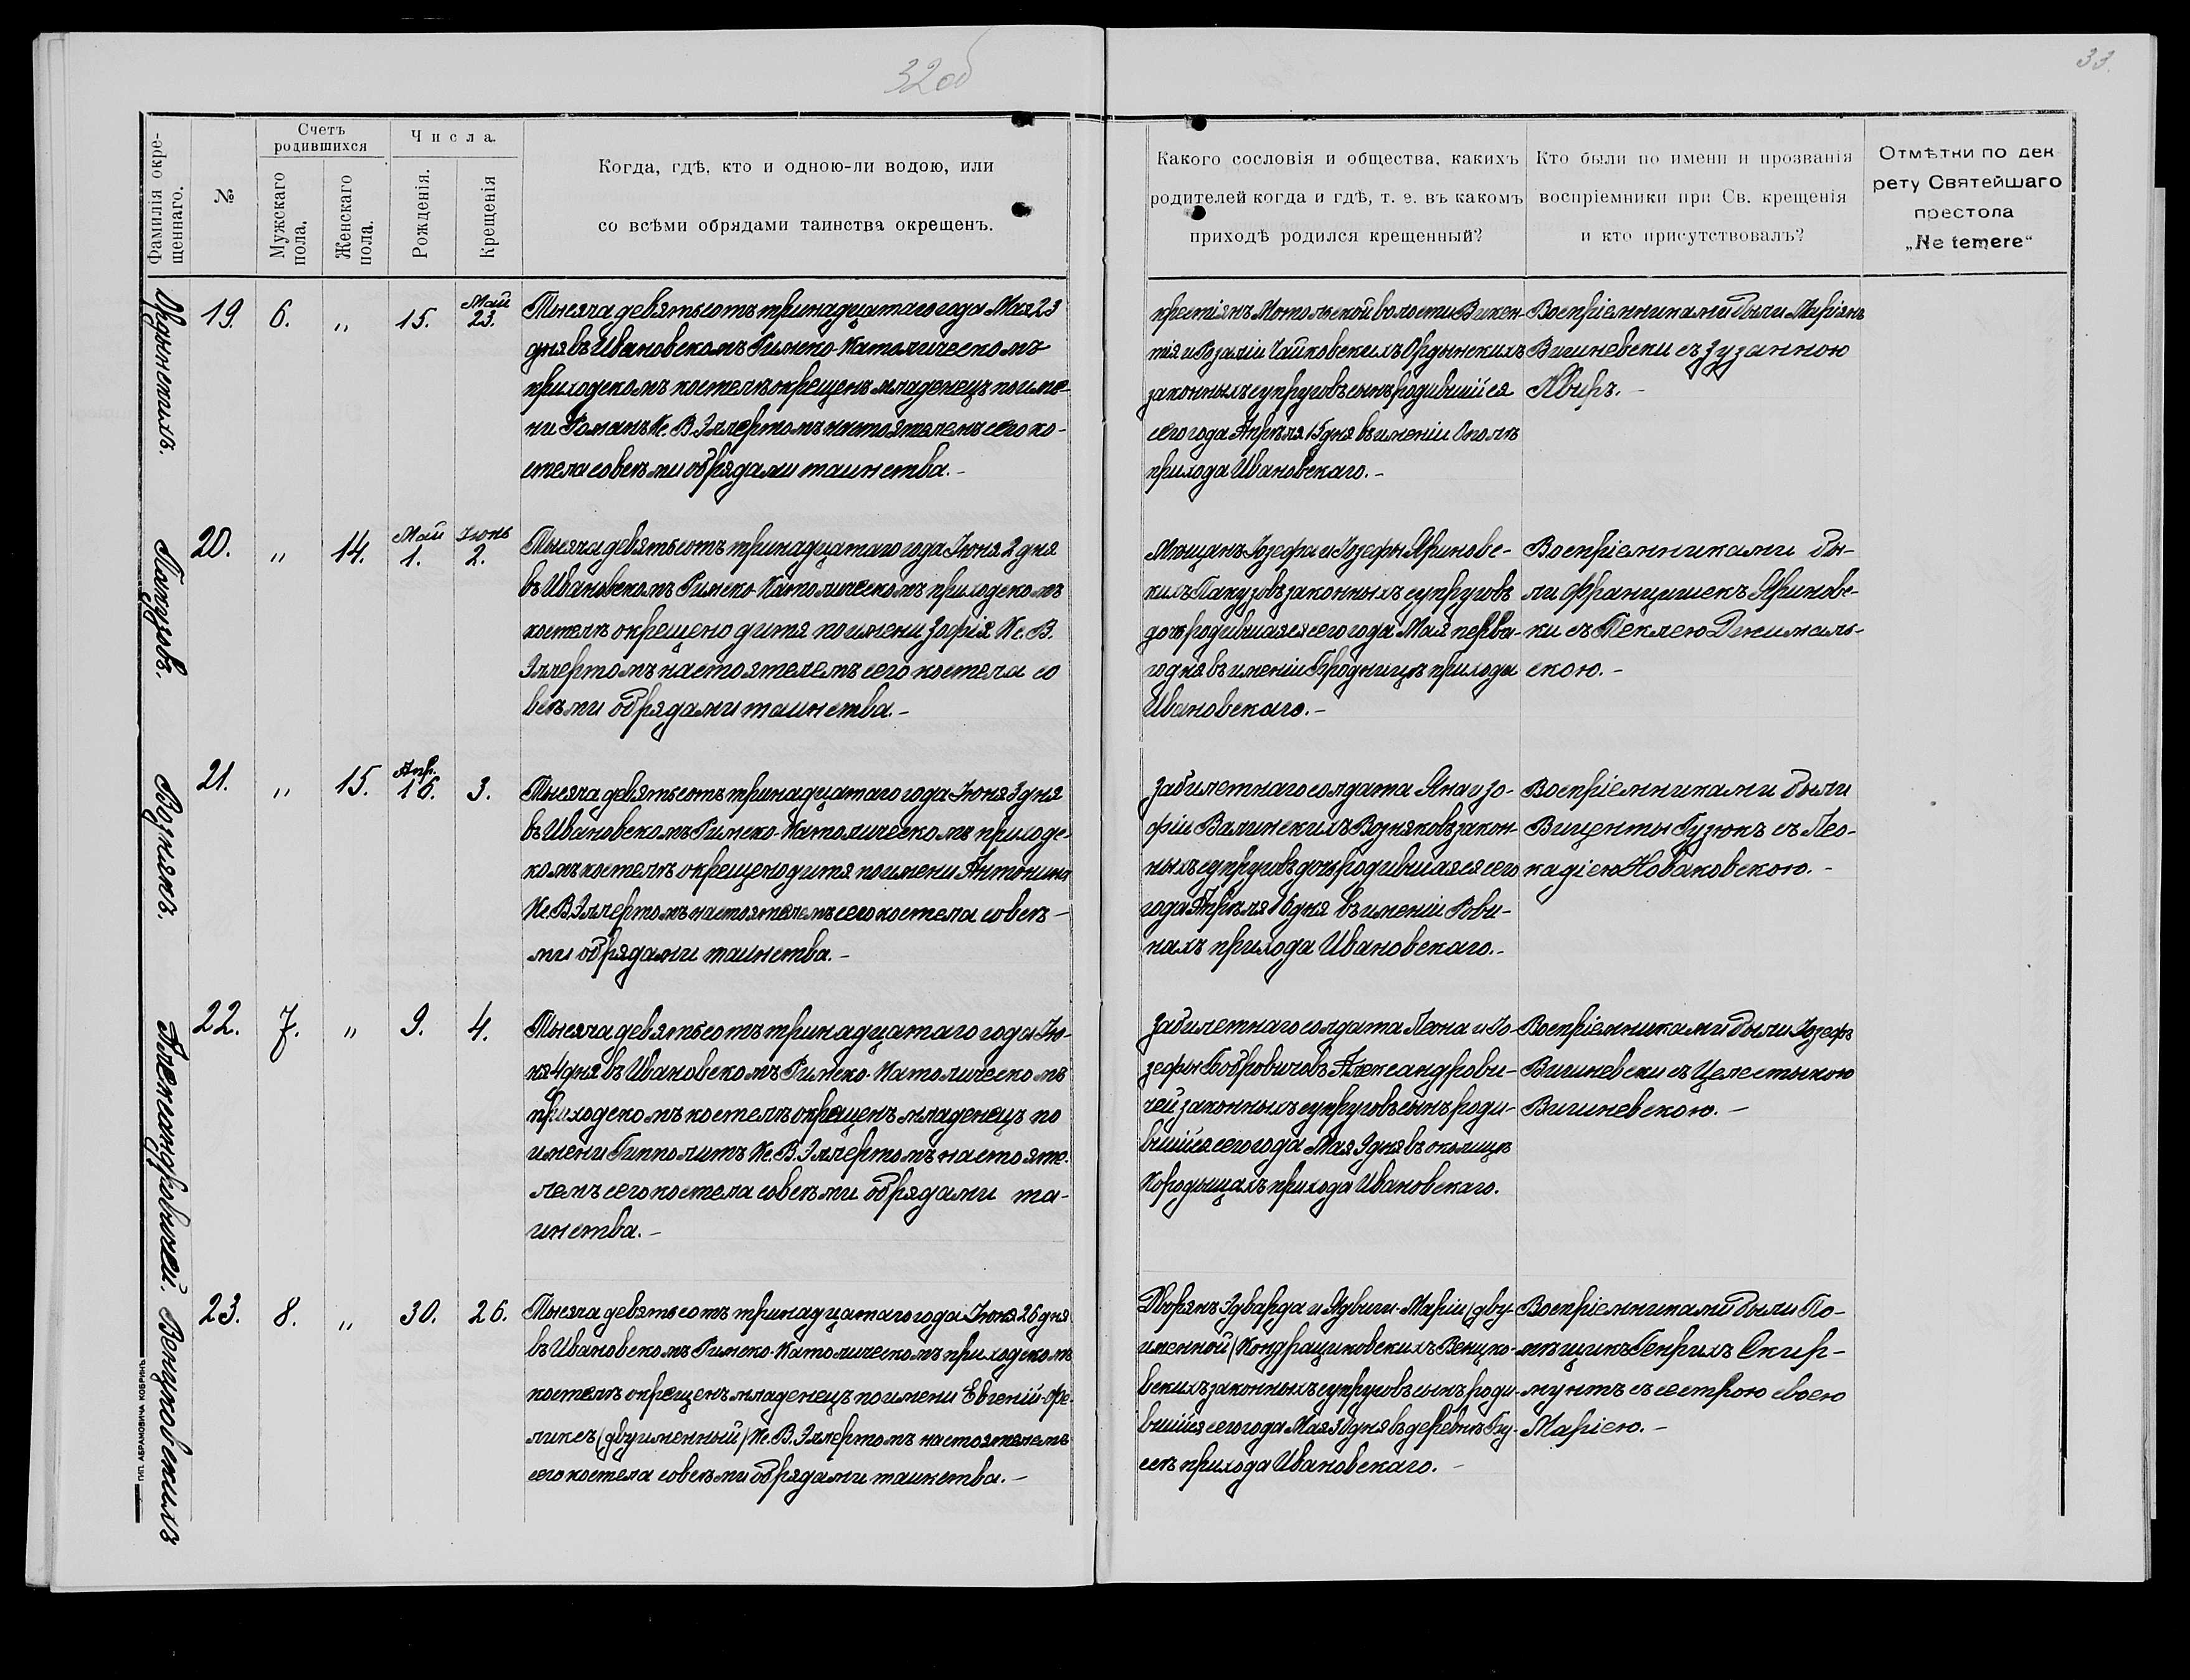 32 об
33.
Фамилія окре-
щеннаго.
№
Счетъ
родившихся
Мужскаго
пола.
Женскаго
пола.
Числа.
Рожденія.
Крещенія
Когда, гдѣ, кто и одною-ли водою, или
со всѣми обрядами таинства окрещенъ.
Какого сословія и общества, какихъ
родителей когда и гдѣ, т. е. въ какомъ
приходѣ родился крещенный?
Кто были по имени и прозванія
воспріемники при Св. крещенія
и кто присутствовалъ?
Отмѣтки по дек
рету Святейшаго
престола
„Ne temere“
Ордынскихъ.
19. 6. „ 15. Май 23.
Тысяча девятьсотъ тринадцатаго года Мая 23
дня въ Ивановскомъ Римско-Католическомъ
приходскомъ костелѣ окрещенъ младенецъ по име-
ни Романъ Кс. В. Эллертомъ настоятелемъ сего ко-
стела со всѣми обрядами таинства.-
крестіянъ Мотольской волости Викен-
тія и Розаліи Чайковскихъ Ордынскихъ
законныхъ супруговъ сынъ родившійся
сего года Апрѣля 15 дня въ имѣніи Ополѣ
прихода Ивановскаго.-
Воспріемниками были Маріянъ
Вишневски съ Зузанною
Квиръ.-
Пакузовъ.
20. „ 14. Май 1. Іюнь 2.
Тысяча девятьсотъ тринадцатаго года Іюня 2 дня
въ Ивановскомъ Римско-Католическомъ приходскомъ
костелѣ окрещено дитя по имени Зофія Кс. В.
Эллертомъ настоятелемъ сего костела со
всѣми обрядами таинства.-
Мѣщанъ Іозефа и Іозефы Яриновс-
кихъ Пакузовъ законныхъ супруговъ
дочь родившаяся сего года Мая перва-
го дня въ имѣніи Бродницѣ прихода
Ивановскаго.-
Воспріемниками бы-
ли Францишекъ Яриновс-
ки съ Теклею Доминаль-
скою.-
Вознякъ.
21. „ 15. Апр. 16. 3.
Тысяча девятьсотъ тринадцатаго года Іюня 3 дня
въ Ивановскомъ Римско-Католическомъ приходс-
комъ костелѣ окрещено дитя по имени Антонина
Кс. В. Эллертомъ настоятелемъ сего костела со всѣ-
ми обрядами таинства.-
Забилетнаго солдата Яна и Зо-
фіи Валинскихъ Возняковъ закон-
ныхъ супруговъ дочь родившаяся сего
года Апрѣля 16 дня въ имѣніи Рови-
нахъ прихода Ивановскаго.-
Воспріемниками были
Виценты Гузюкъ съ Лео-
кадіею Новаковскою.-
Александровичей.
22. 7. „ 9. 4.
Тысяча девятьсотъ тринадцатаго года Ію-
ня 4 дня въ Ивановскомъ Римско-Католическомъ
приходскомъ костелѣ окрещенъ младенецъ по
имени Гипполитъ Кс. В. Эллертомъ настояте-
лемъ сего костела со всѣми обрядами та-
инства.-
Забилетнаго солдата Леона и Іо-
зефы Бобровичовъ Александрови-
чей законныхъ супруговъ сынъ роди-
вшійся сего года Мая 9 дня въ околицѣ
Кородыщахъ прихода Ивановскаго.
Воспріемниками были Іозефъ
Вишневски съ Целестыною
Вишневскою.-
Венцковскихъ
23. 8. „ 30. 26.
Тысяча девятьсотъ тринадцатаго года Іюня 26 дня
въ Ивановскомъ Римско-Католическомъ приходскомъ
костелѣ окрещенъ младенецъ по имени Евгеній-Фе-
ликсъ (двуименный) Кс. В. Эллертомъ настоятелемъ
сего костела со всѣми обрядами таинства.-
Дворянъ Эдварда и Ядвиги-Маріи (дву-
именной) Кондрациковскихъ Венцко-
вскихъ законныхъ супруговъ сынъ роди-
вшійся сего года Мая 30 дня въ деревнѣ Гну-
сѣ прихода Ивановскаго.-
Воспріемниками были По-
мѣщикъ Генрихъ Скир-
мунтъ съ сестрою своею
Маріею.-
ТИП. АБРАМОВИЧА КОБРИНЪ